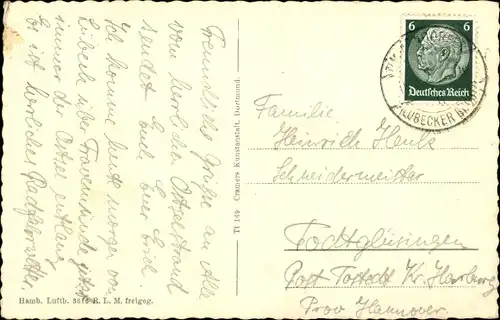 Freundliche Grüße an Alle
vom herrlichen Ostseestrand
sendet Euch Euer Erich
Ich komme heute morgen von
Lübeck über Travemünde jetzt
immer der Ostsee entlang
Es ist herrliches Radfahrwetter.
Hamb. Luftb. R. L. M. freigeg.
Tt 149 Cramers Kunstanstalt, Dortmund.
6 6
Deutsches Reich
LÜBECKER
Familie
Heinrich
Schneidermeister
Todtglüsingen
Post Tostedt Kr. Harburg
Prov Hannover.